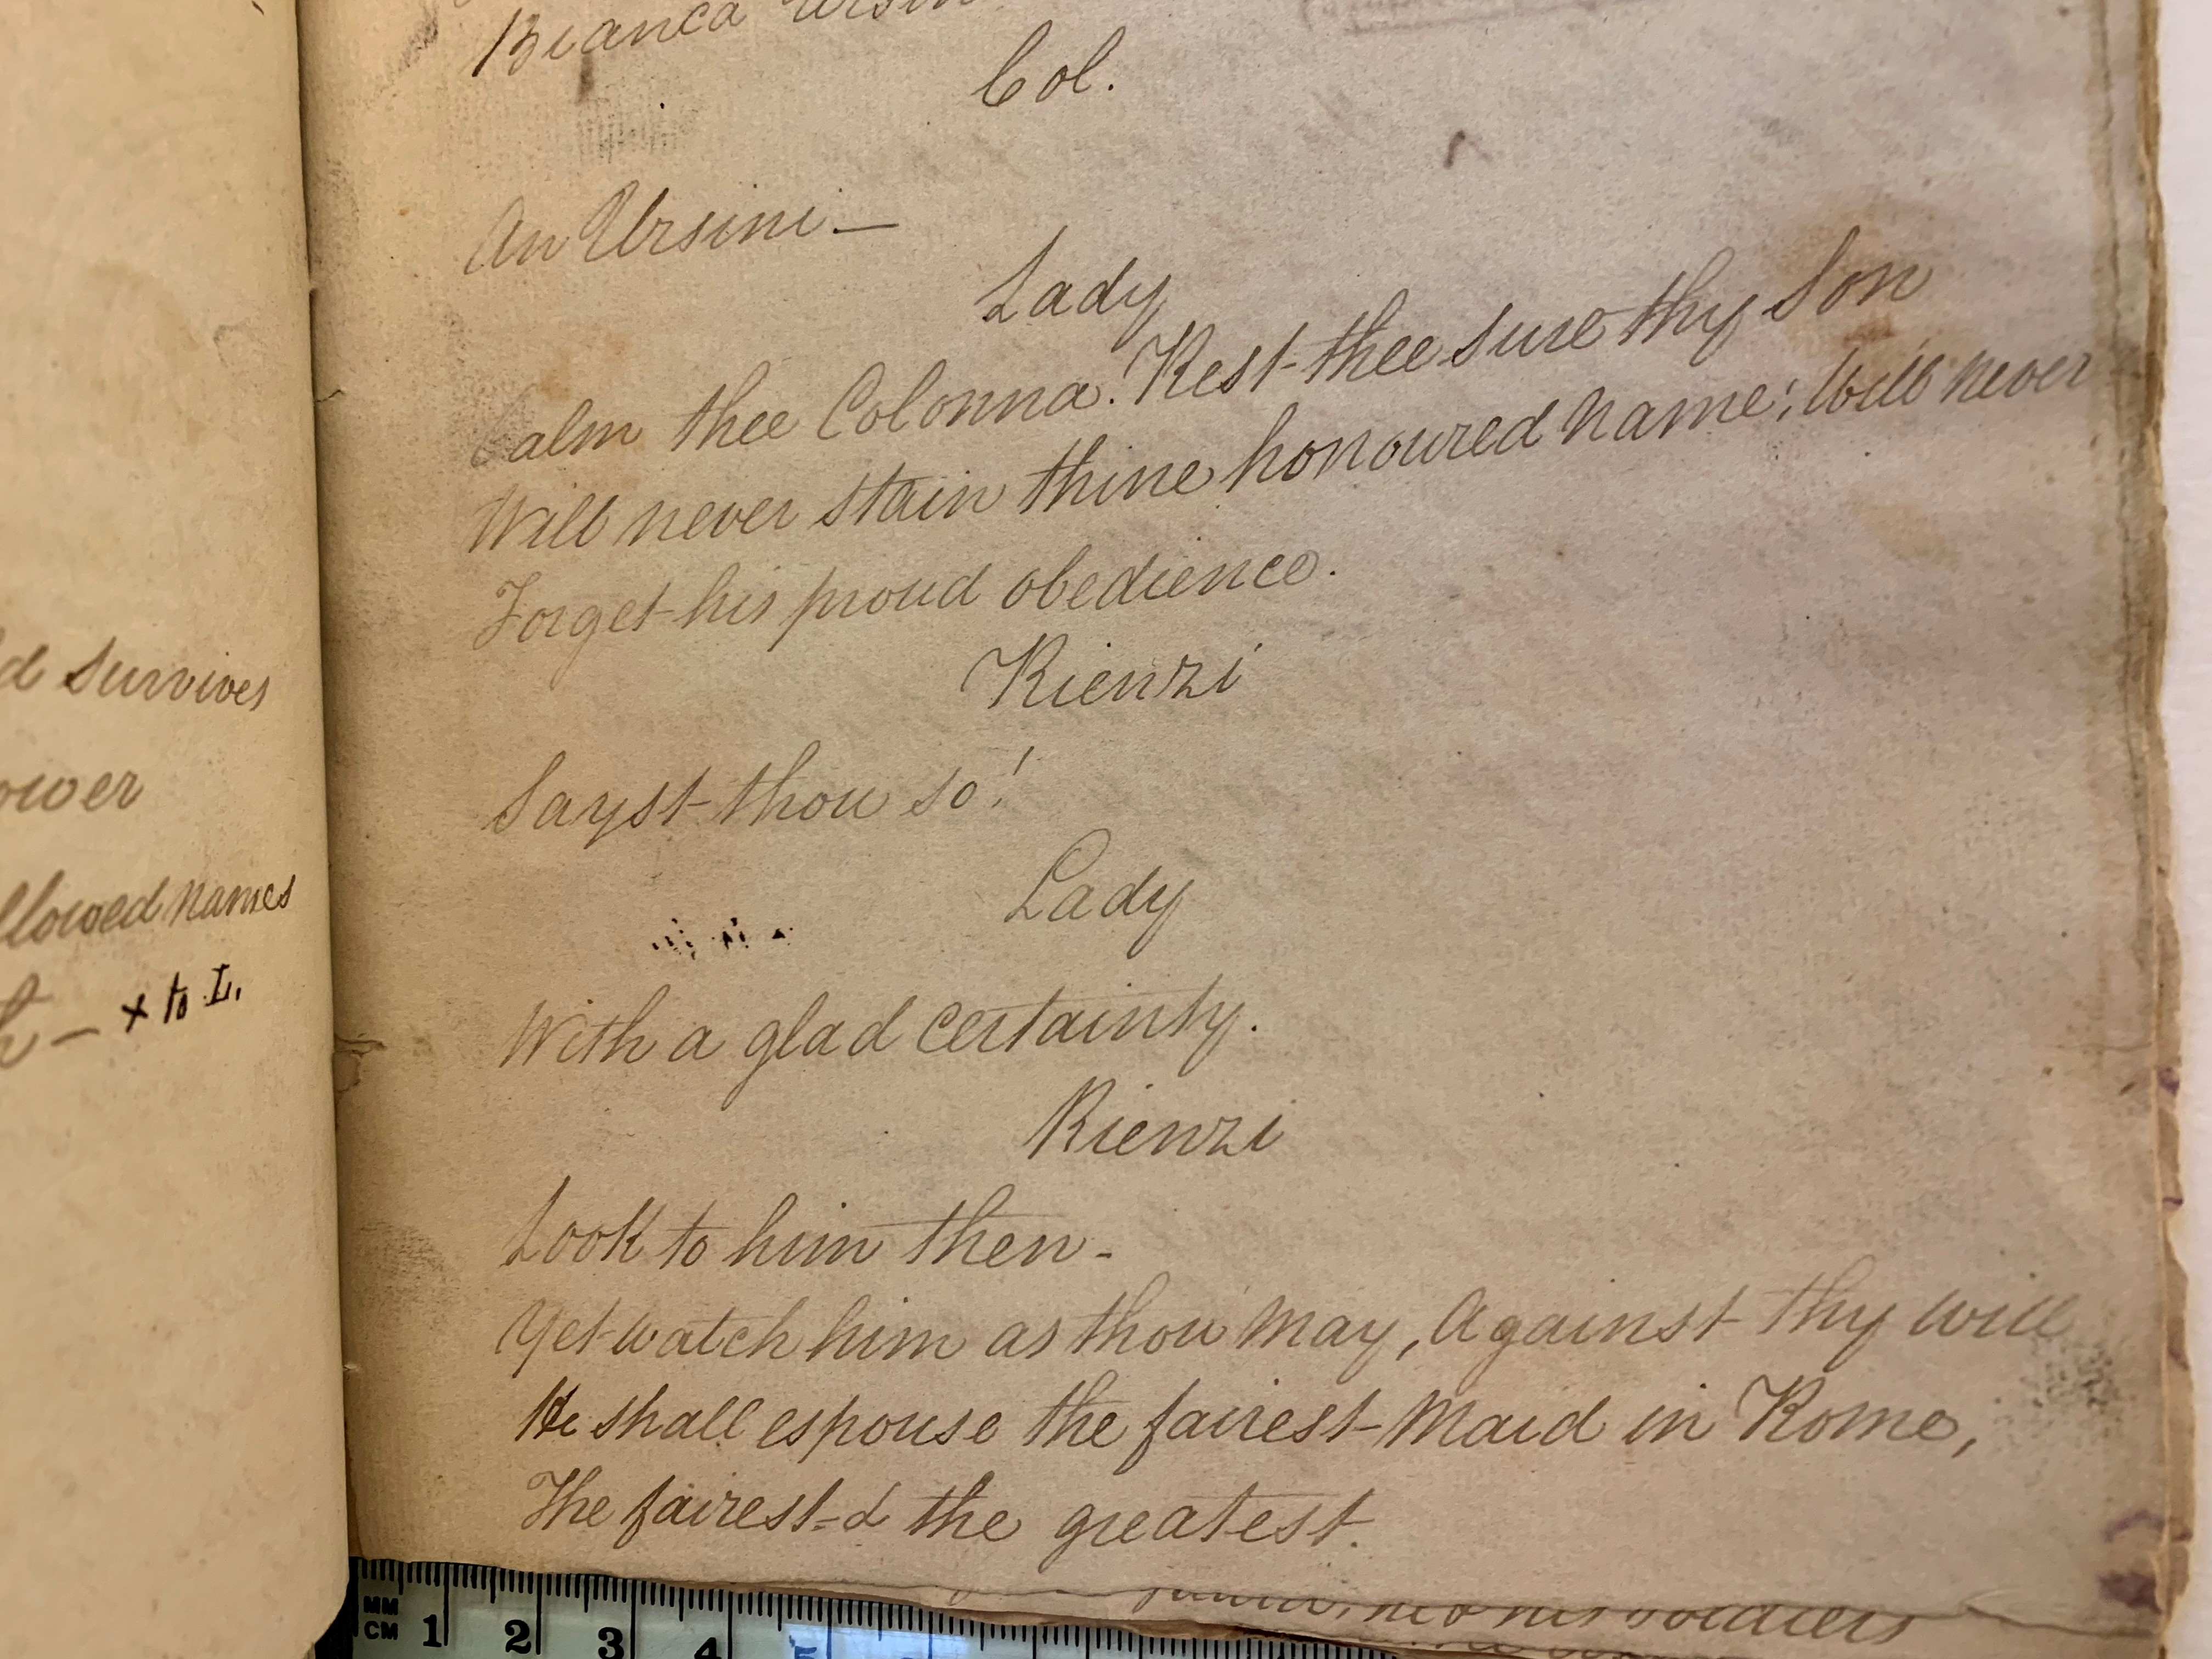 d survives
ower
llowed names
h — + to L.
Bianca Ursin
Col.
An Ursini —
Lady
Calm thee Colonna. Rest thee sure thy Son
Will never stain thine honoured name; Will never
Forget his proud obedience.
Rienzi
Sayst thou so!
Lady
With a glad certainty.
Rienzi
Look to him then -
Yet watch him as thou may, Against thy will
He shall espouse the fairest Maid in Rome,
The fairest & the greatest.
his soldiers
MM
CM 1 2 3 4 5